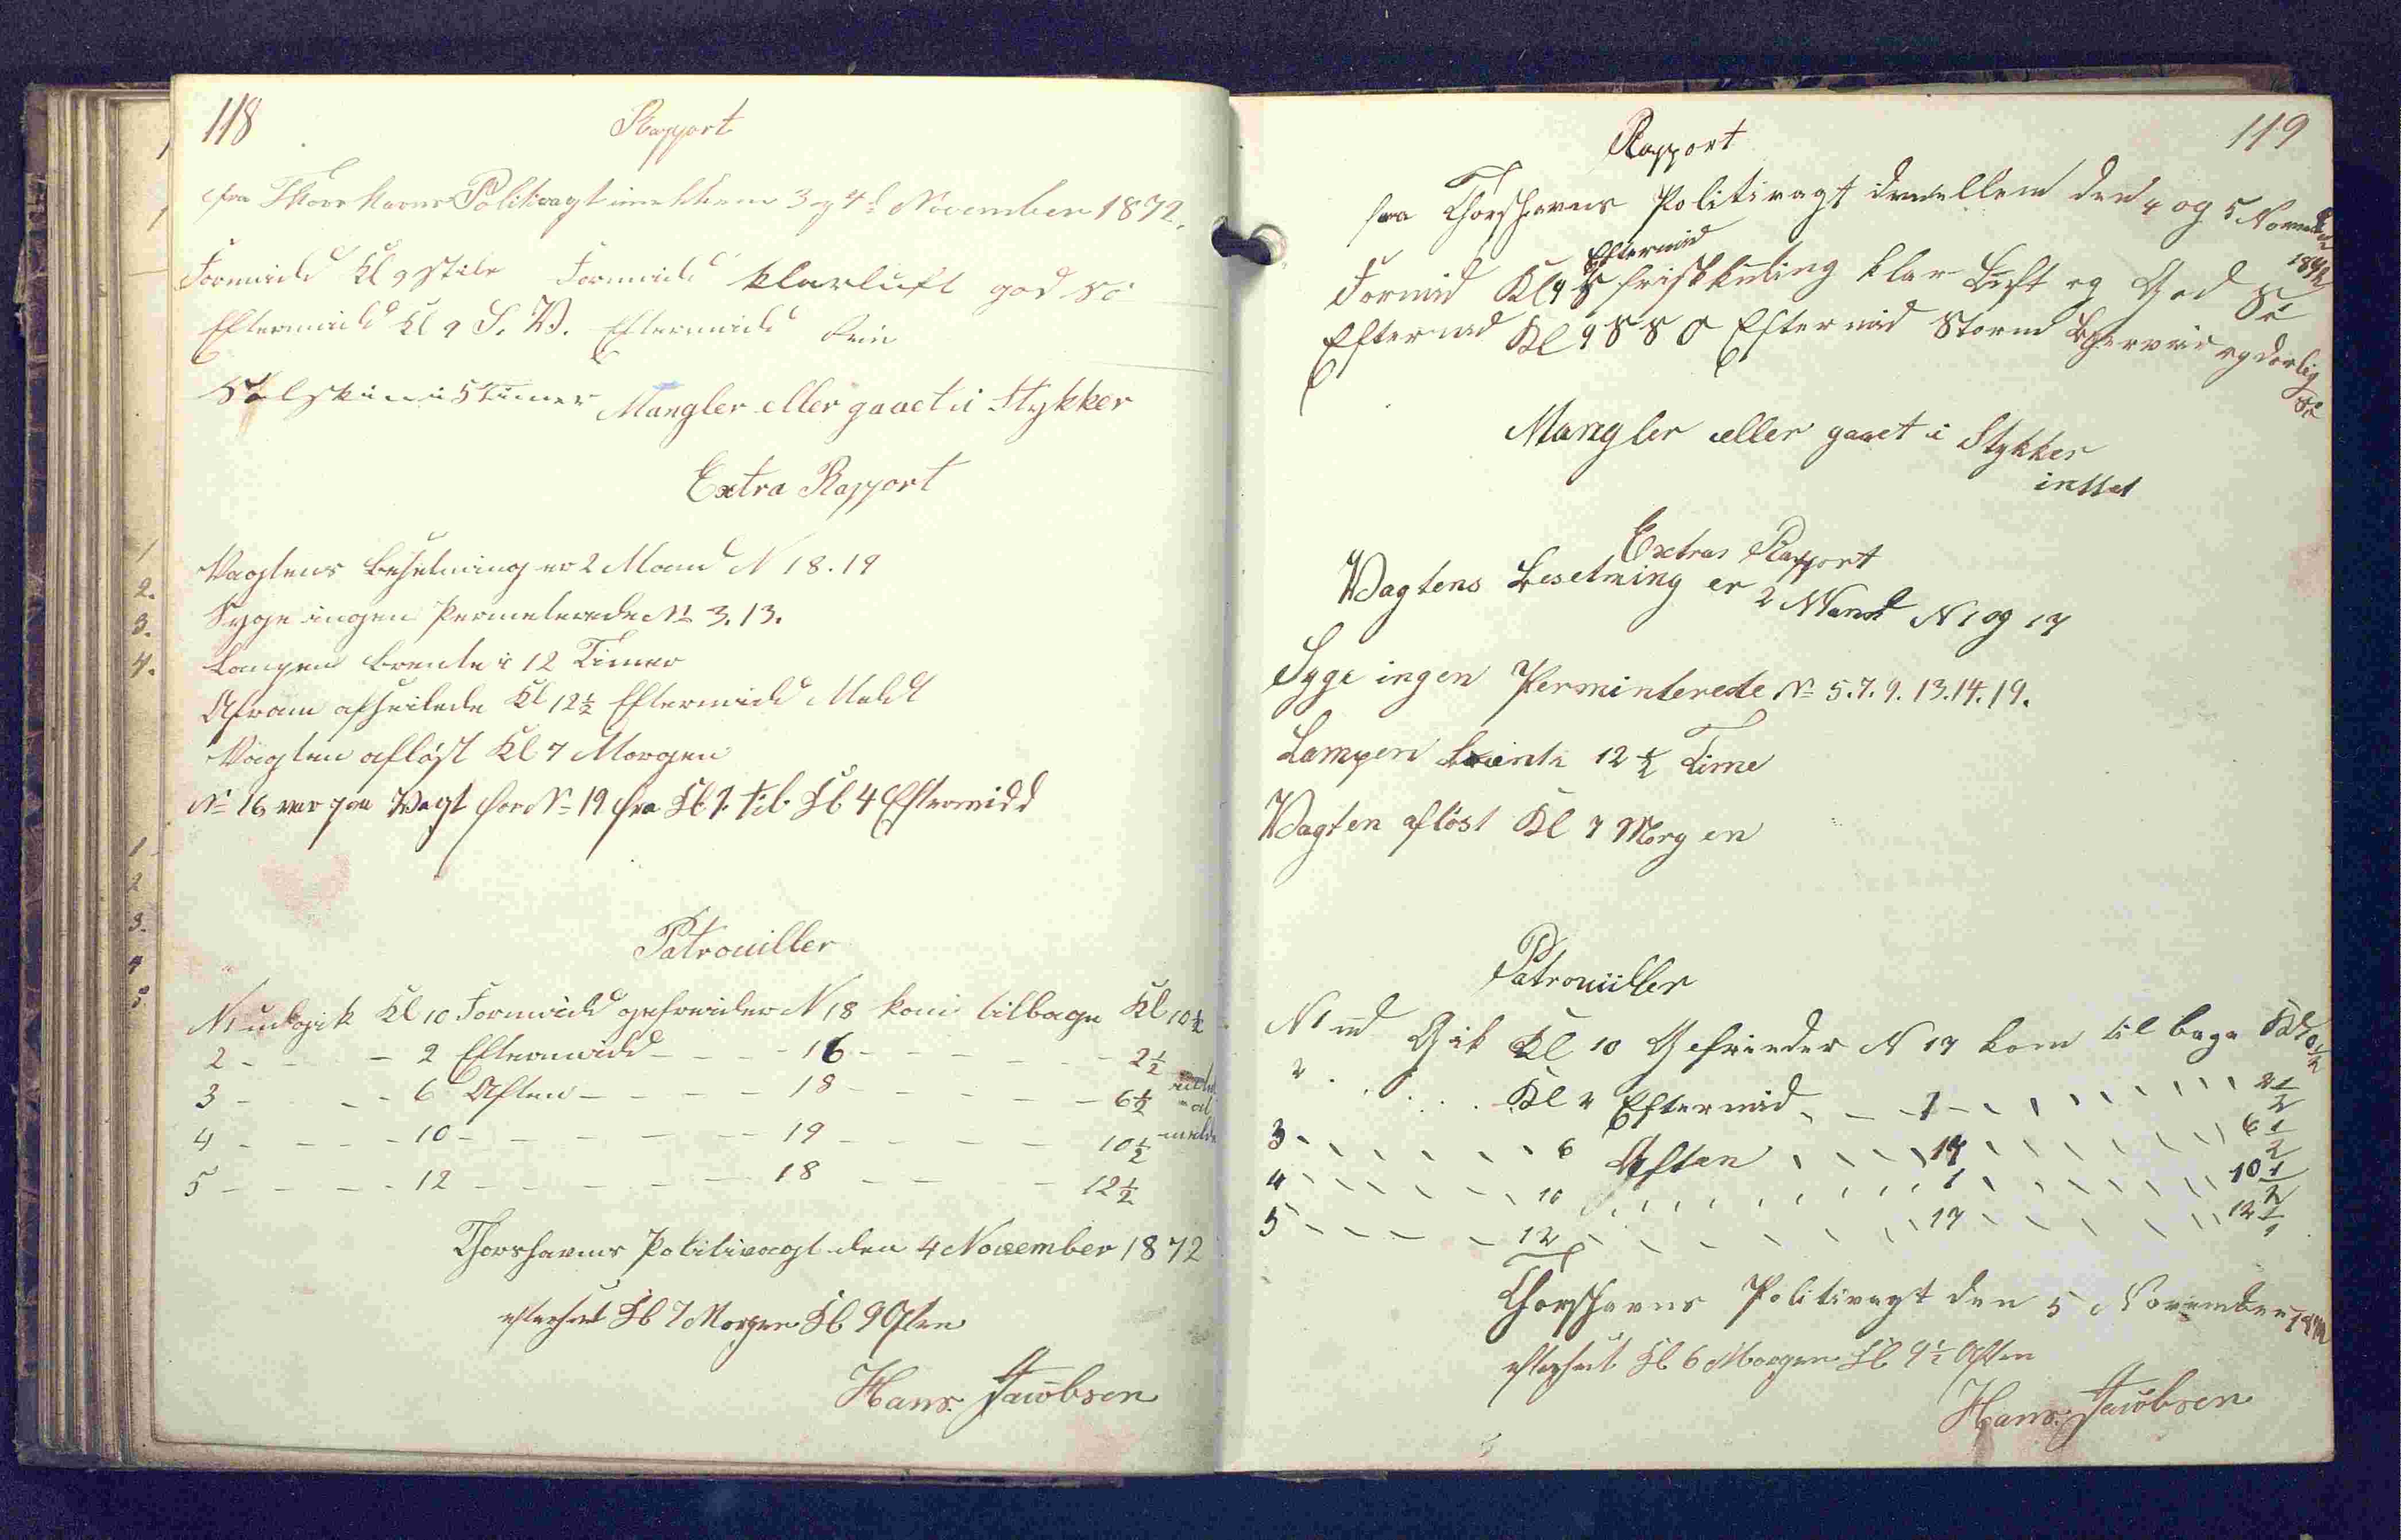 118
Rapport
fra Thorshavns Politivagt imellem 3 og 4de November 1872.
Formidd Kl 9 Stile Formidd klarluft god Sö
Eftermidd Kl 9 S. V. Eftermidd
Solskin i 5 Timer Mangler eller gaaet i Stykker
Extra Rapport
Vagtens Besetning er 2 Mand N 18. 19
Syge ingen Permeterede No 3. 13.
Lampen brente i 12 Timer
afseilede Kl 12½ Eftermidd
Vagten aflöst Kl 7 Morgen
No 16 var paa Vagt for No 19 fra Kl 1 til Kl 4 Eftermidd
Patrouiller
N 1 udgik Kl 10 Formidd gefreider N 18 kom tilbage Kl 10½
2 - - - 2 Eftermidd - - - - 16 - - - - - - 2½
3 - - - - 6 Aften - - - - 18 - - - - - - 6½
4 - - - - 10 - - - - - - 19 - - - - - 10½
5 - - - - 12 - - - - - - 18 - - - 12½
Thorshavns Politivagt den 4 November 1872
efterseet Kl 7 Morgen Kl 9 Aften
Hans Jacobsen
119
Rapport
fra Thorshavns Politivagt imellem den 4 og 5 November
1872
Eftermid
Formid Kl 9 S friskkuling klar Luft og God Sö
Eftermid Kl 9 S S O Eftermid Storm og dorlig
Sö
Mangler eller gaaet i Stykker
inttet
Extra Rapport
Vagtens Besetning er 2 Mand N 1 og 17
Syge ingen Perminterede No 5. 7. 9. 13. 14. 19.
Lampen brente 12½ Time
Vagten aflöst Kl 7 Morgen
Patrouiller
N 1 ud Gik Kl 10 Gefrieder N 17 kom til bage Kl 10½
2 . . . . Kl 2 Eftermid - - 1 - - - - - 2½
3 - - - - - 6 Aften - - - 17 - - - - - 6½
4 - - - - - 10 - - - - - - 1 - - - - - 10½
5 - - - - 12 - - - - - - 17 - - - - 12½
Thorshavns Politivagt den 5 November 1872
efterseet Kl 6 Morgen Kl 9½ Aften
Hans Jacobsen